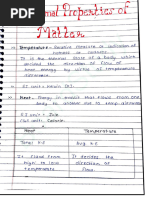 rmal Properties of
Matter
Temperature - Relative measure or indication of
hotness or coldness.
It is the thermal state of a body which
decides the direction of flow of
heat energy by virtue of its temperature
difference.
S.I unit - Kelvin (K).
Heat - Energy in transit that flows from one
body to another due to temp difference
S.I unit - Joule
CGS unit - Calorie.
Heat Temperature
Total K.E Avg K.E
It flows from It decides the
high to low direction of
temperature flow.